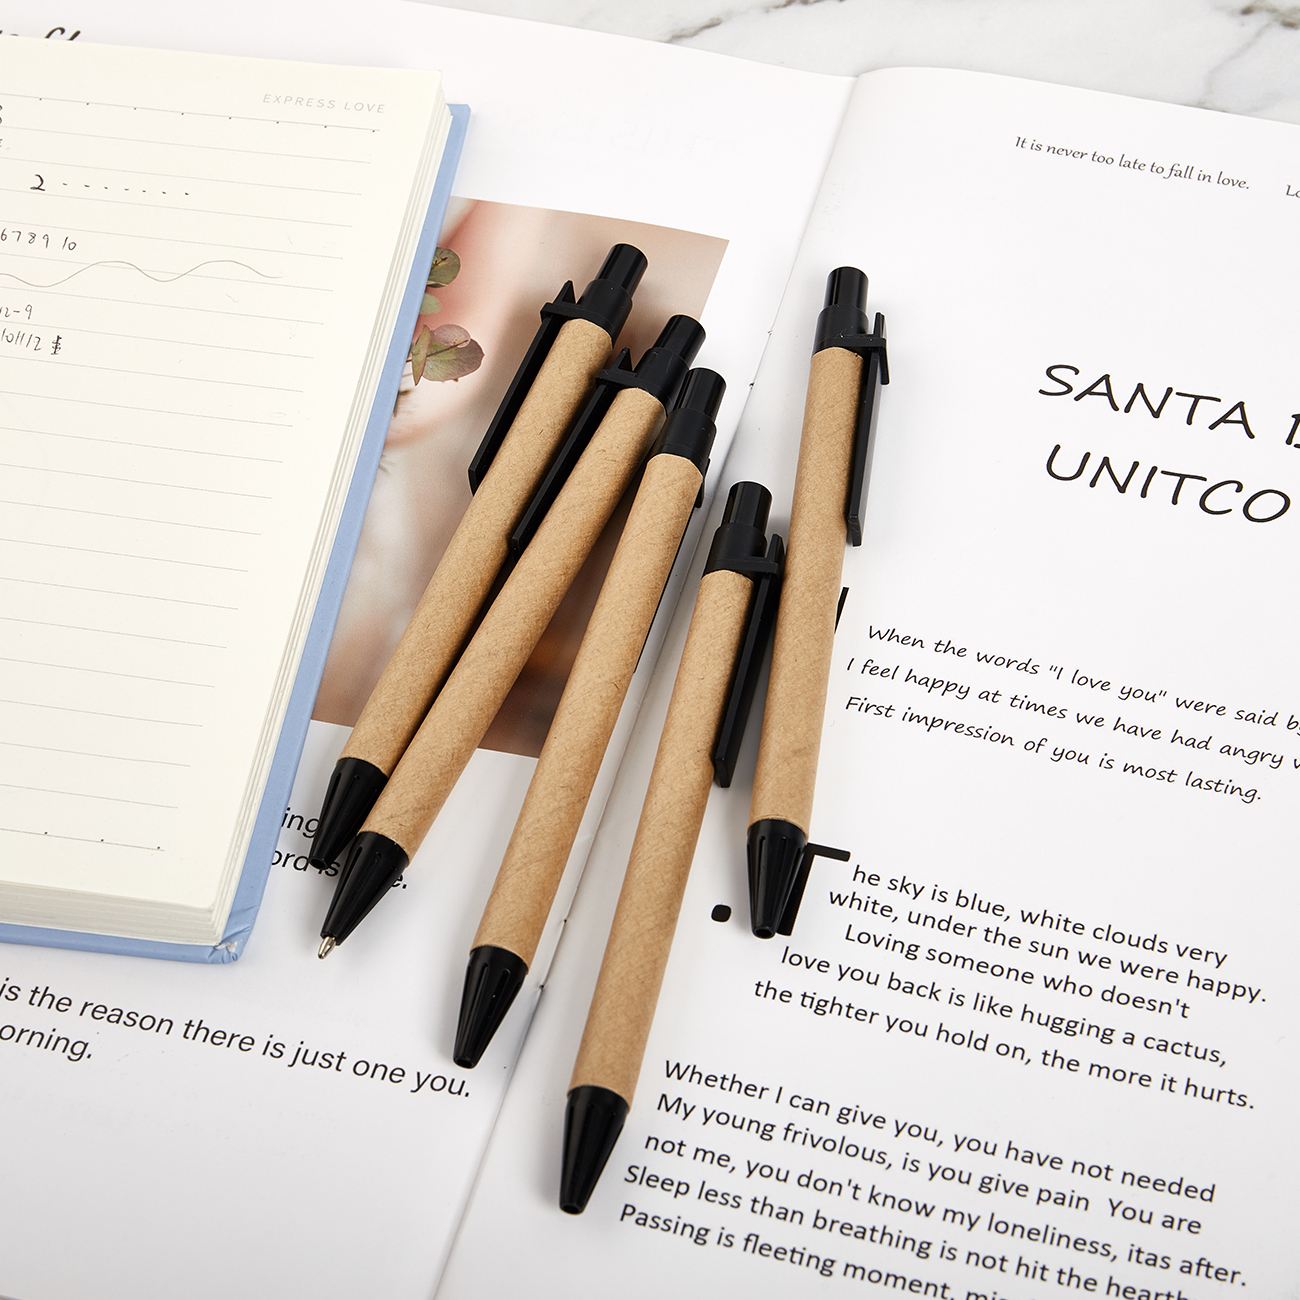 EXPRESS LOVE
2 - - - - - - -
6 7 8 9 10
12-9
ing
ord is
e.
is the reason there is just one you.
orning.
It is never too late to fall in love.
SANTA
UNITCO
When the words "I love you" were said by
I feel happy at times we have had angry
First impression of you is most lasting.
The sky is blue, white clouds very
white, under the sun we were happy.
Loving someone who doesn't
love you back is like hugging a cactus,
the tighter you hold on, the more it hurts.
Whether I can give you, you have not needed
My young frivolous, is you give pain You are
not me, you don't know my loneliness, itas after.
Sleep less than breathing is not hit the
Passing is fleeting moment,